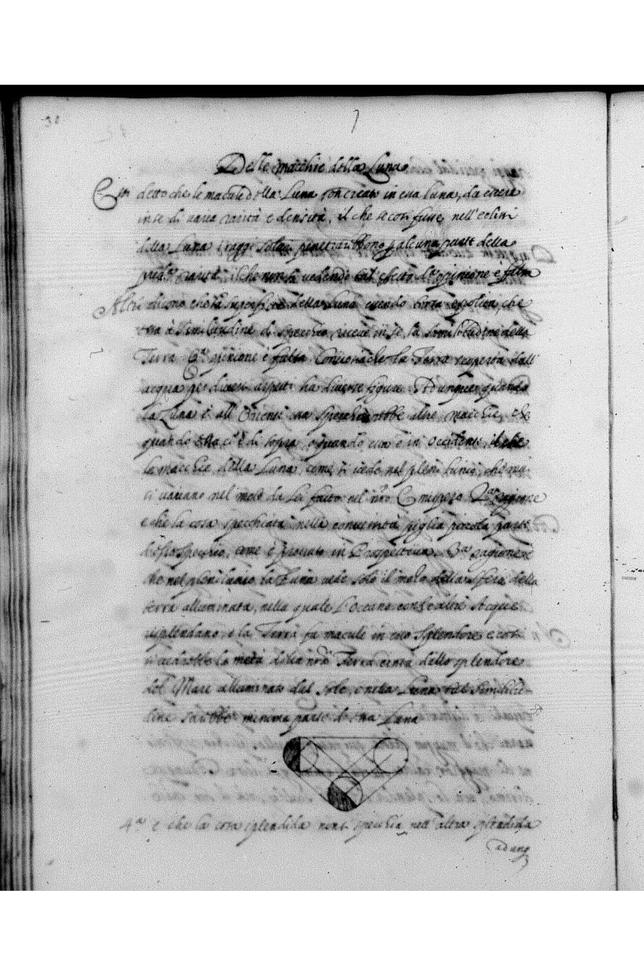 38
7
Delle macchie della Luna
Eſsi detto che le macule della Luna son create in eſsa luna, da eſsere
in se di varia rarità e densità, il che se coſi fuſse, nell'ecliſsi
della Luna i raggi solari penetrarebbono p alcuna parte della
pred.ᵃ rarità, il che non si vedendo tal effetto dett'opinione è falsa
Altri dicono che la superfitie della Luna eſsendo tersa e polita, che
eſsa à similitudine di specchio riceve in se la similitudine della
Terra. Q.ᵃ opinione è falsa conciosiache la terra scoperta dall'
acqua per diversi aspetti ha diverse figure. Adunque quando
la Luna è all'Oriente eſsa specchiarebbe altre macchie, che
quando ella ci è di sopra, o quando eſsa è in occidente, il che
le macchie della Luna, come si vede nel plenilunio, che mai
si variano nel moto da lei fatto nel nr̃o Emispero. 2.ᵃ ragione
è che la cosa specchiata nella conveſsità piglia piccola parte
di eſso specchio, come è provato in Prospettiva. 3.ᵃ ragione è
che nel plenilunio la Luna vede solo il mezo della sfera della
terra alluminata, nella quale l'Oceano con l'altre Acque
risplendano, e la Terra fa macule in eſso splendore e così
si vedrebbe la metà della nr̃a Terra cinta dello splendore
del Mare alluminato dal Sole, e nella Luna tal simili=
tudine sarebbe minima parte di eſsa Luna
4.ᵃ è che la cosa splendida non si specchia nell'altra splendida
adunq